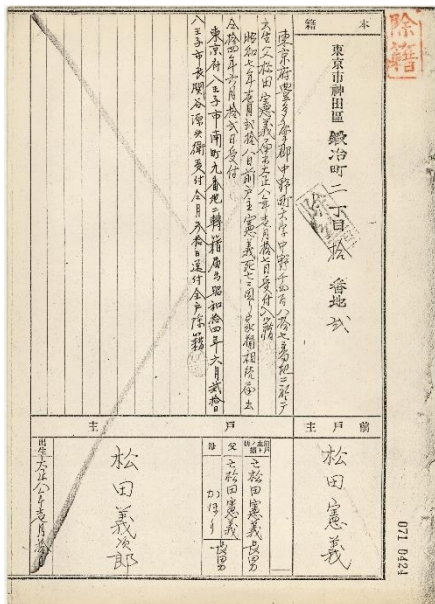 除籍
本籍
東京市神田區鍛冶町二丁目拾番地弐
東京府豊多摩郡中野町大字中野千四百八拾七番地ニ於テ
出生父松田憲義届出大正八年壱月拾七日受付入籍
昭和七年壱月弐拾八日前戸主憲義死亡ニ因リ家督相続届出
仝拾四年六月拾弐日受付
東京府八王子市南町九番地ニ轉籍届出昭和拾四年六月弐拾日
八王子市長関谷源兵衛受付仝月弐拾日送付全戸除籍
前戸主
松田憲義
戸主
亡松田憲義長男
父
亡松田憲義
母
かほり
長男
松田義次郎
出生大正八年壱月
071 0424